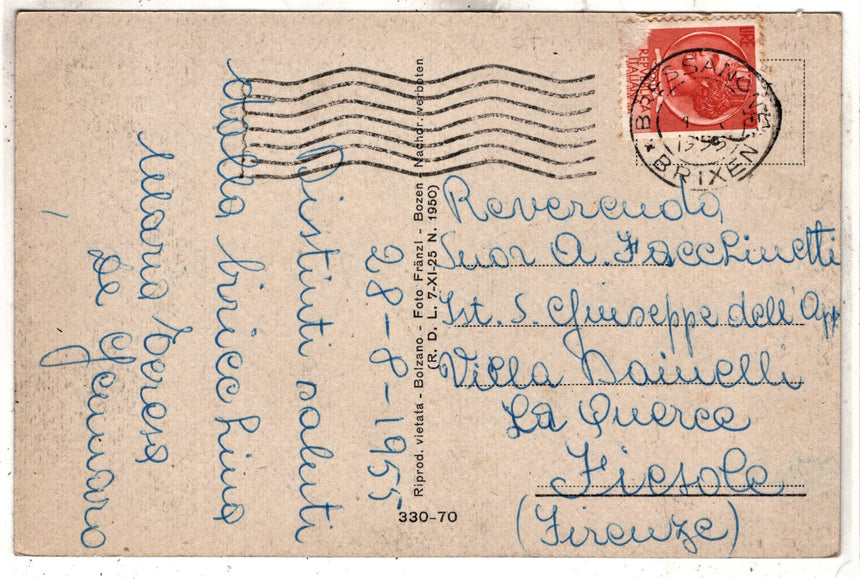 28-8-1955
Distinti saluti
dalla biricchina
Maria Teresa
De Gennaro
Riprod. vietata - Bolzano - Foto Fränzl - Bozen - Nachdr. verboten
(R. D. L. 7-XI-25 N. 1950)
330-70
LIRE
REPUBBLICA
ITALIANA
BRESSANONE
1955
* BRIXEN
Reverenda
Suor A. Facchinetti
Ist. S. Giuseppe dell'App
Villa Dainelli
La Querce
Fiesole
(Firenze)